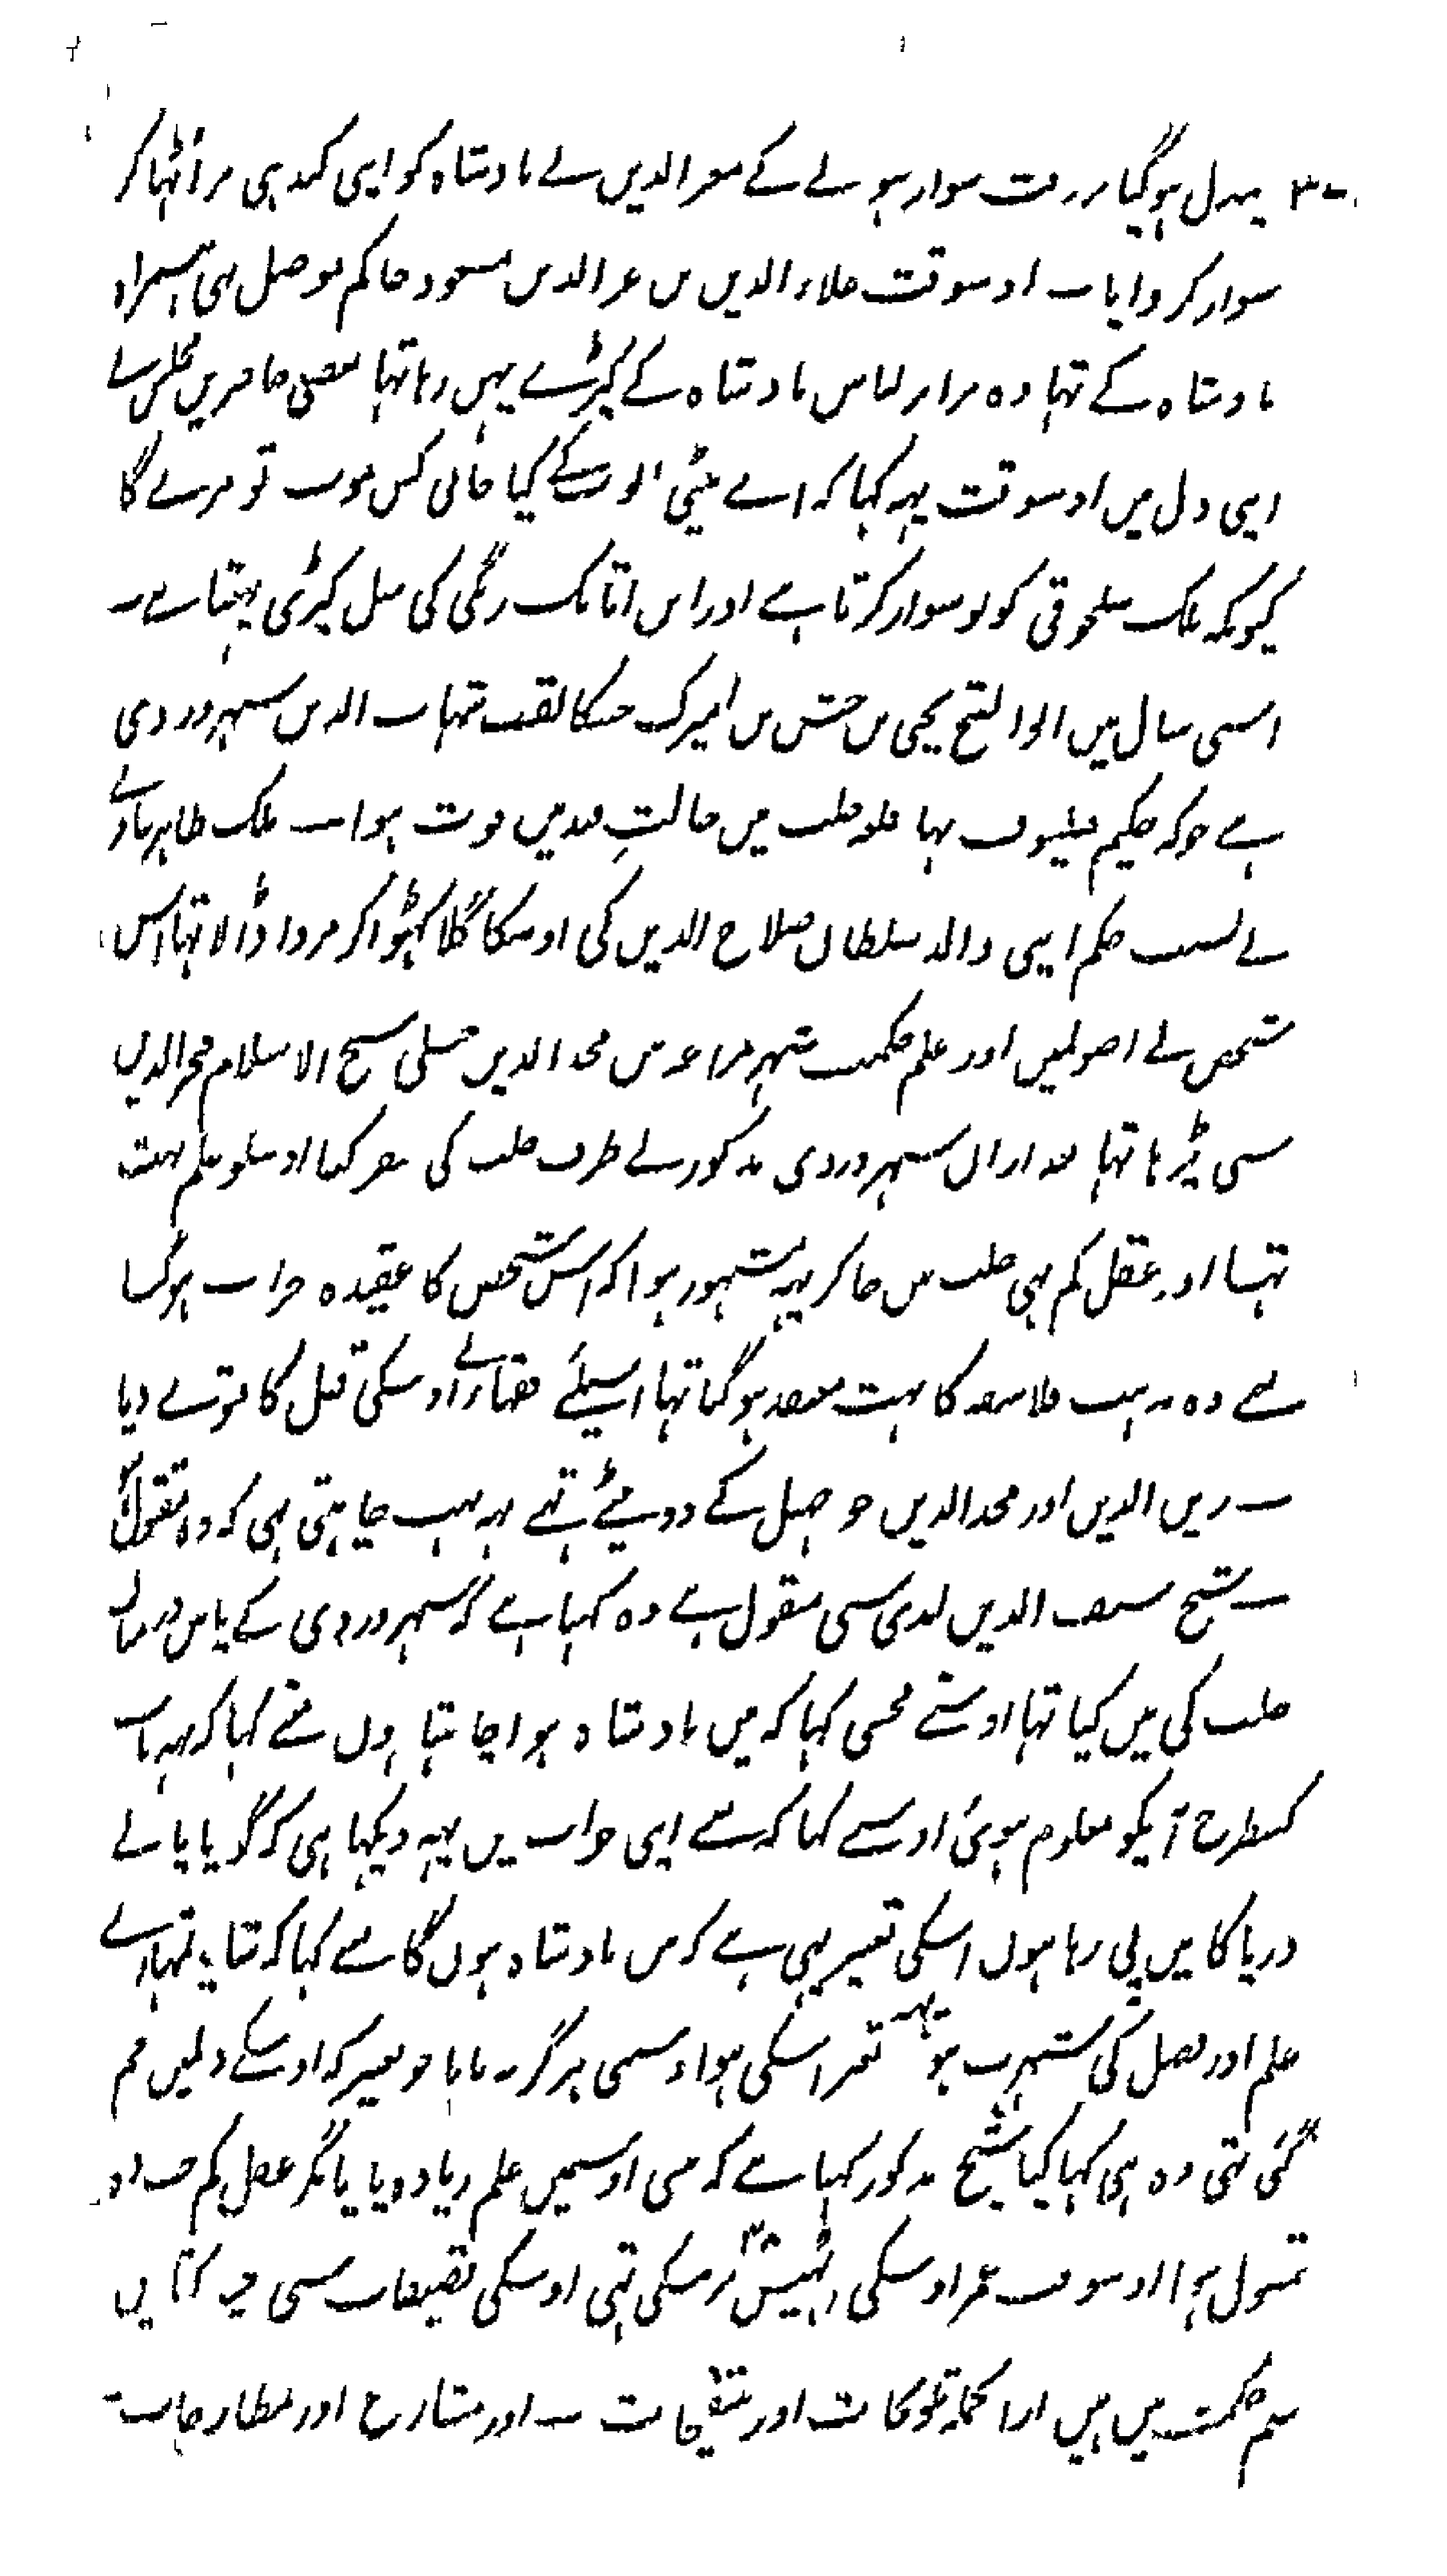 پیدل ہوگیا بروقت سوار ہونے کے معز الدین نے بادشاہ کو اپنی کندہی پر اُٹہا کر
سوار کروایا۔ اوسوقت علاء الدین بن عز الدین مسعود حاکم موصل بہی ہمراہ
بادشاہ کے تہا وہ برابر لباس بادشاہ کے کپڑے پہن رہا تہا بعضی حاضرین مجلس نے
اپنی دل میں اوسوقت یہہ کہا کہ اے بیٹی ایوب کے کیا جانی کس موت تو مرے گا
کیونکہ ملک سلجوقی کو تو سوار کرتا ہے اور ابن اتابک زنگی کی مثل کپڑی پہنتا ہے۔
اسی سال میں ابو الفتح یحیی بن حبش بن امیرک جسکا لقب شہاب الدین سہروردی
ہے جو کہ حکیم فیلسوف تہا قلعہ حلب میں حالتِ قید میں فوت ہوا۔ ملک ظاہر بادشاہ
نے بسبب حکم اپنی والد سلطان صلاح الدین کی اوسکا گلا گہٹوا کر مروا ڈالا تہا اس
شخص نے اصولین اور علم حکمت شہر مراغہ میں مجد الدین جیلی شیخ الاسلام فخر الدین
سی پڑہا تہا بعد ازان سہروردی مذکور نے طرف حلب کی سفر کیا اوسکو علم بہت
تہا اور عقل کم تہی حلب میں جا کر یہہ مشہور ہوا کہ اس شخص کا عقیدہ خراب ہوگیا
ہے وہ مذہب فلاسفہ کا بہت معتقد ہوگیا تہا اسیلئے فقہا نے اوسکی قتل کا فتوے دیا
۔ زین الدین اور مجد الدین جو جہبل کے دو بیٹے تہے یہہ بہت چاہتی تہی کہ وہ مقتول ہو
۔ شیخ سیف الدین آمدی سی منقول ہے وہ کہتا ہے کہ سہروردی کے پاس درمیان
حلب کی میں گیا تہا اوسنے مجہسی کہا کہ میں بادشاہ ہوا چاہتا ہوں مینے کہا کہ یہہ بات
کسطرح آپکو معلوم ہوئی اوسنے کہا کہ مینے اپنی خواب میں یہہ دیکہا ہی کہ گویا پانی
دریا کا میں پی رہا ہوں اسکی تعبیر یہی ہے کہ میں بادشاہ ہوں گا مینے کہا کہ شاید تمہارے
علم اور فضل کی شہرت ہو یہہ تعبیر اسکی ہو اوسنی ہرگز نہ مانا جو تعبیر کہ اوسکے دلمیں جم
گئی تہی وہ ہی کہا کیا شیخ مذکور کہتا ہے کہ مینی اوسمیں علم زیادہ پایا مگر عقل کم جب وہ
مقتول ہوا اوسوقت عمر اوسکی اڑتیس ۳۸ برسکی تہی اوسکی تصنیفات سی چند کتابیں
علم حکمت میں ہیں ازانجملہ تلویحات اور تنقیحات ۔ اور مشارع اور مطارحات